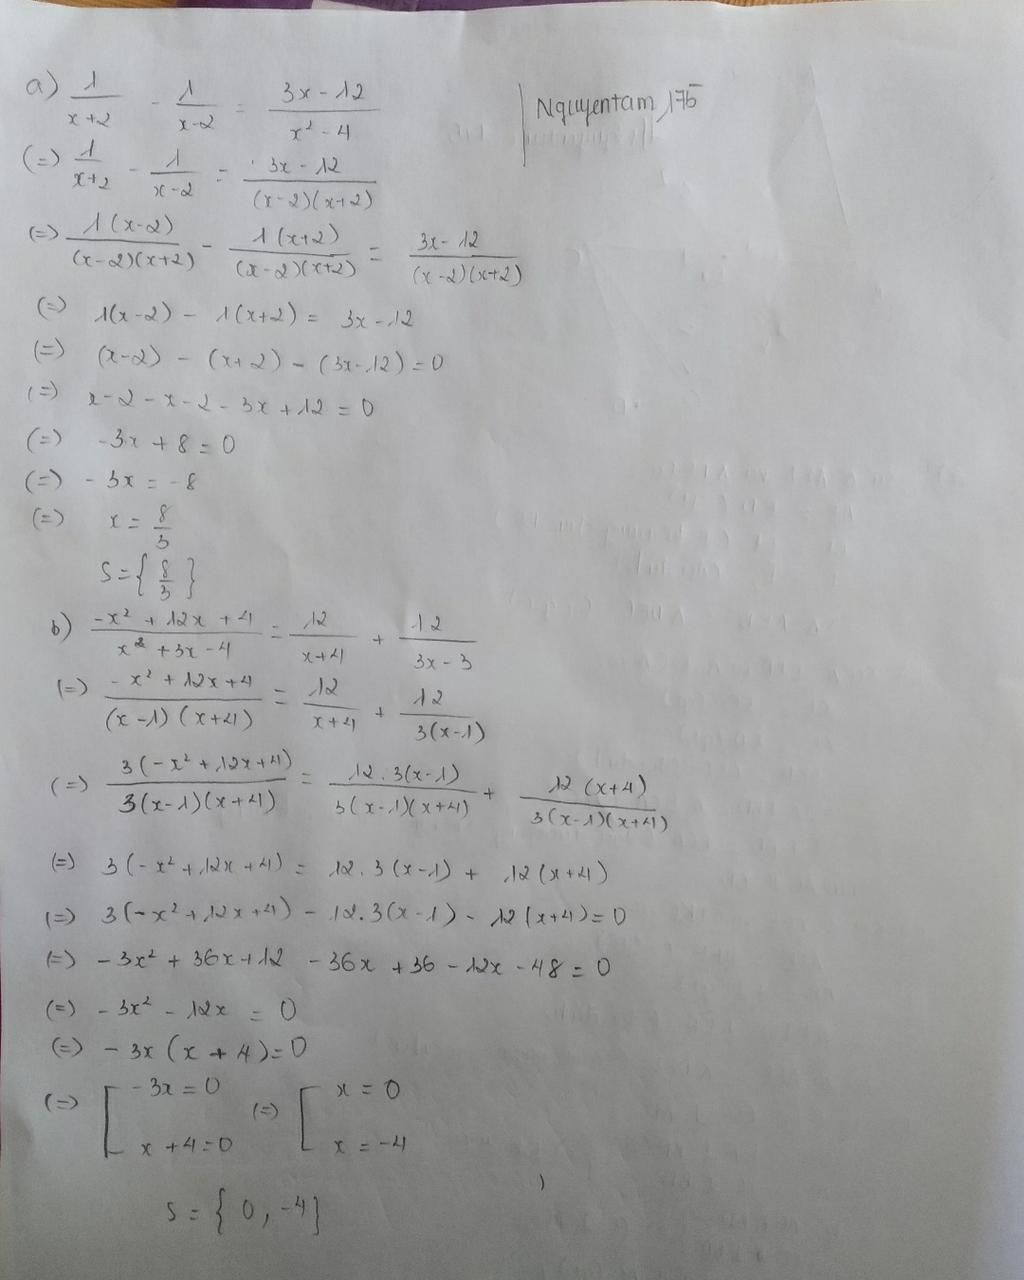 a) 1/(x+2) - 1/(x-2) = (3x-12)/(x²-4)
Nguyentam 175
(=) 1/(x+2) - 1/(x-2) = (3x-12)/((x-2)(x+2))
(=) 1(x-2)/((x-2)(x+2)) - 1(x+2)/((x-2)(x+2)) = (3x-12)/((x-2)(x+2))
(=) 1(x-2) - 1(x+2) = 3x-12
(=) (x-2) - (x+2) - (3x-12) = 0
(=) x-2-x-2-3x+12 = 0
(=) -3x + 8 = 0
(=) -3x = -8
(=) x = 8/3
S = {8/3}
b) (-x² + 12x + 4)/(x² + 3x - 4) = 12/(x+4) + 12/(3x-3)
(=) (-x² + 12x + 4)/((x-1)(x+4)) = 12/(x+4) + 12/(3(x-1))
(=) 3(-x² + 12x + 4)/(3(x-1)(x+4)) = 12.3(x-1)/(3(x-1)(x+4)) + 12(x+4)/(3(x-1)(x+4))
(=) 3(-x² + 12x + 4) = 12.3(x-1) + 12(x+4)
(=) 3(-x² + 12x + 4) - 12.3(x-1) - 12(x+4) = 0
(=) -3x² + 36x + 12 - 36x + 36 - 12x - 48 = 0
(=) -3x² - 12x = 0
(=) -3x(x + 4) = 0
(=) [ -3x = 0 (=) [ x = 0
x + 4 = 0 x = -4
S = {0, -4}